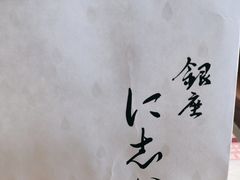 銀座
に志